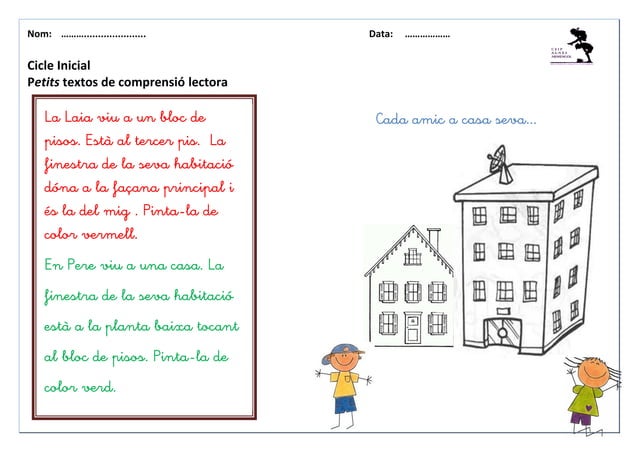 Nom: ……….................. Data: ………………
Cicle Inicial
Petits textos de comprensió lectora
La Laia viu a un bloc de
pisos. Està al tercer pis. La
finestra de la seva habitació
dóna a la façana principal i
és la del mig . Pinta-la de
color vermell.
En Pere viu a una casa. La
finestra de la seva habitació
està a la planta baixa tocant
al bloc de pisos. Pinta-la de
color verd.
Cada amic a casa seva...